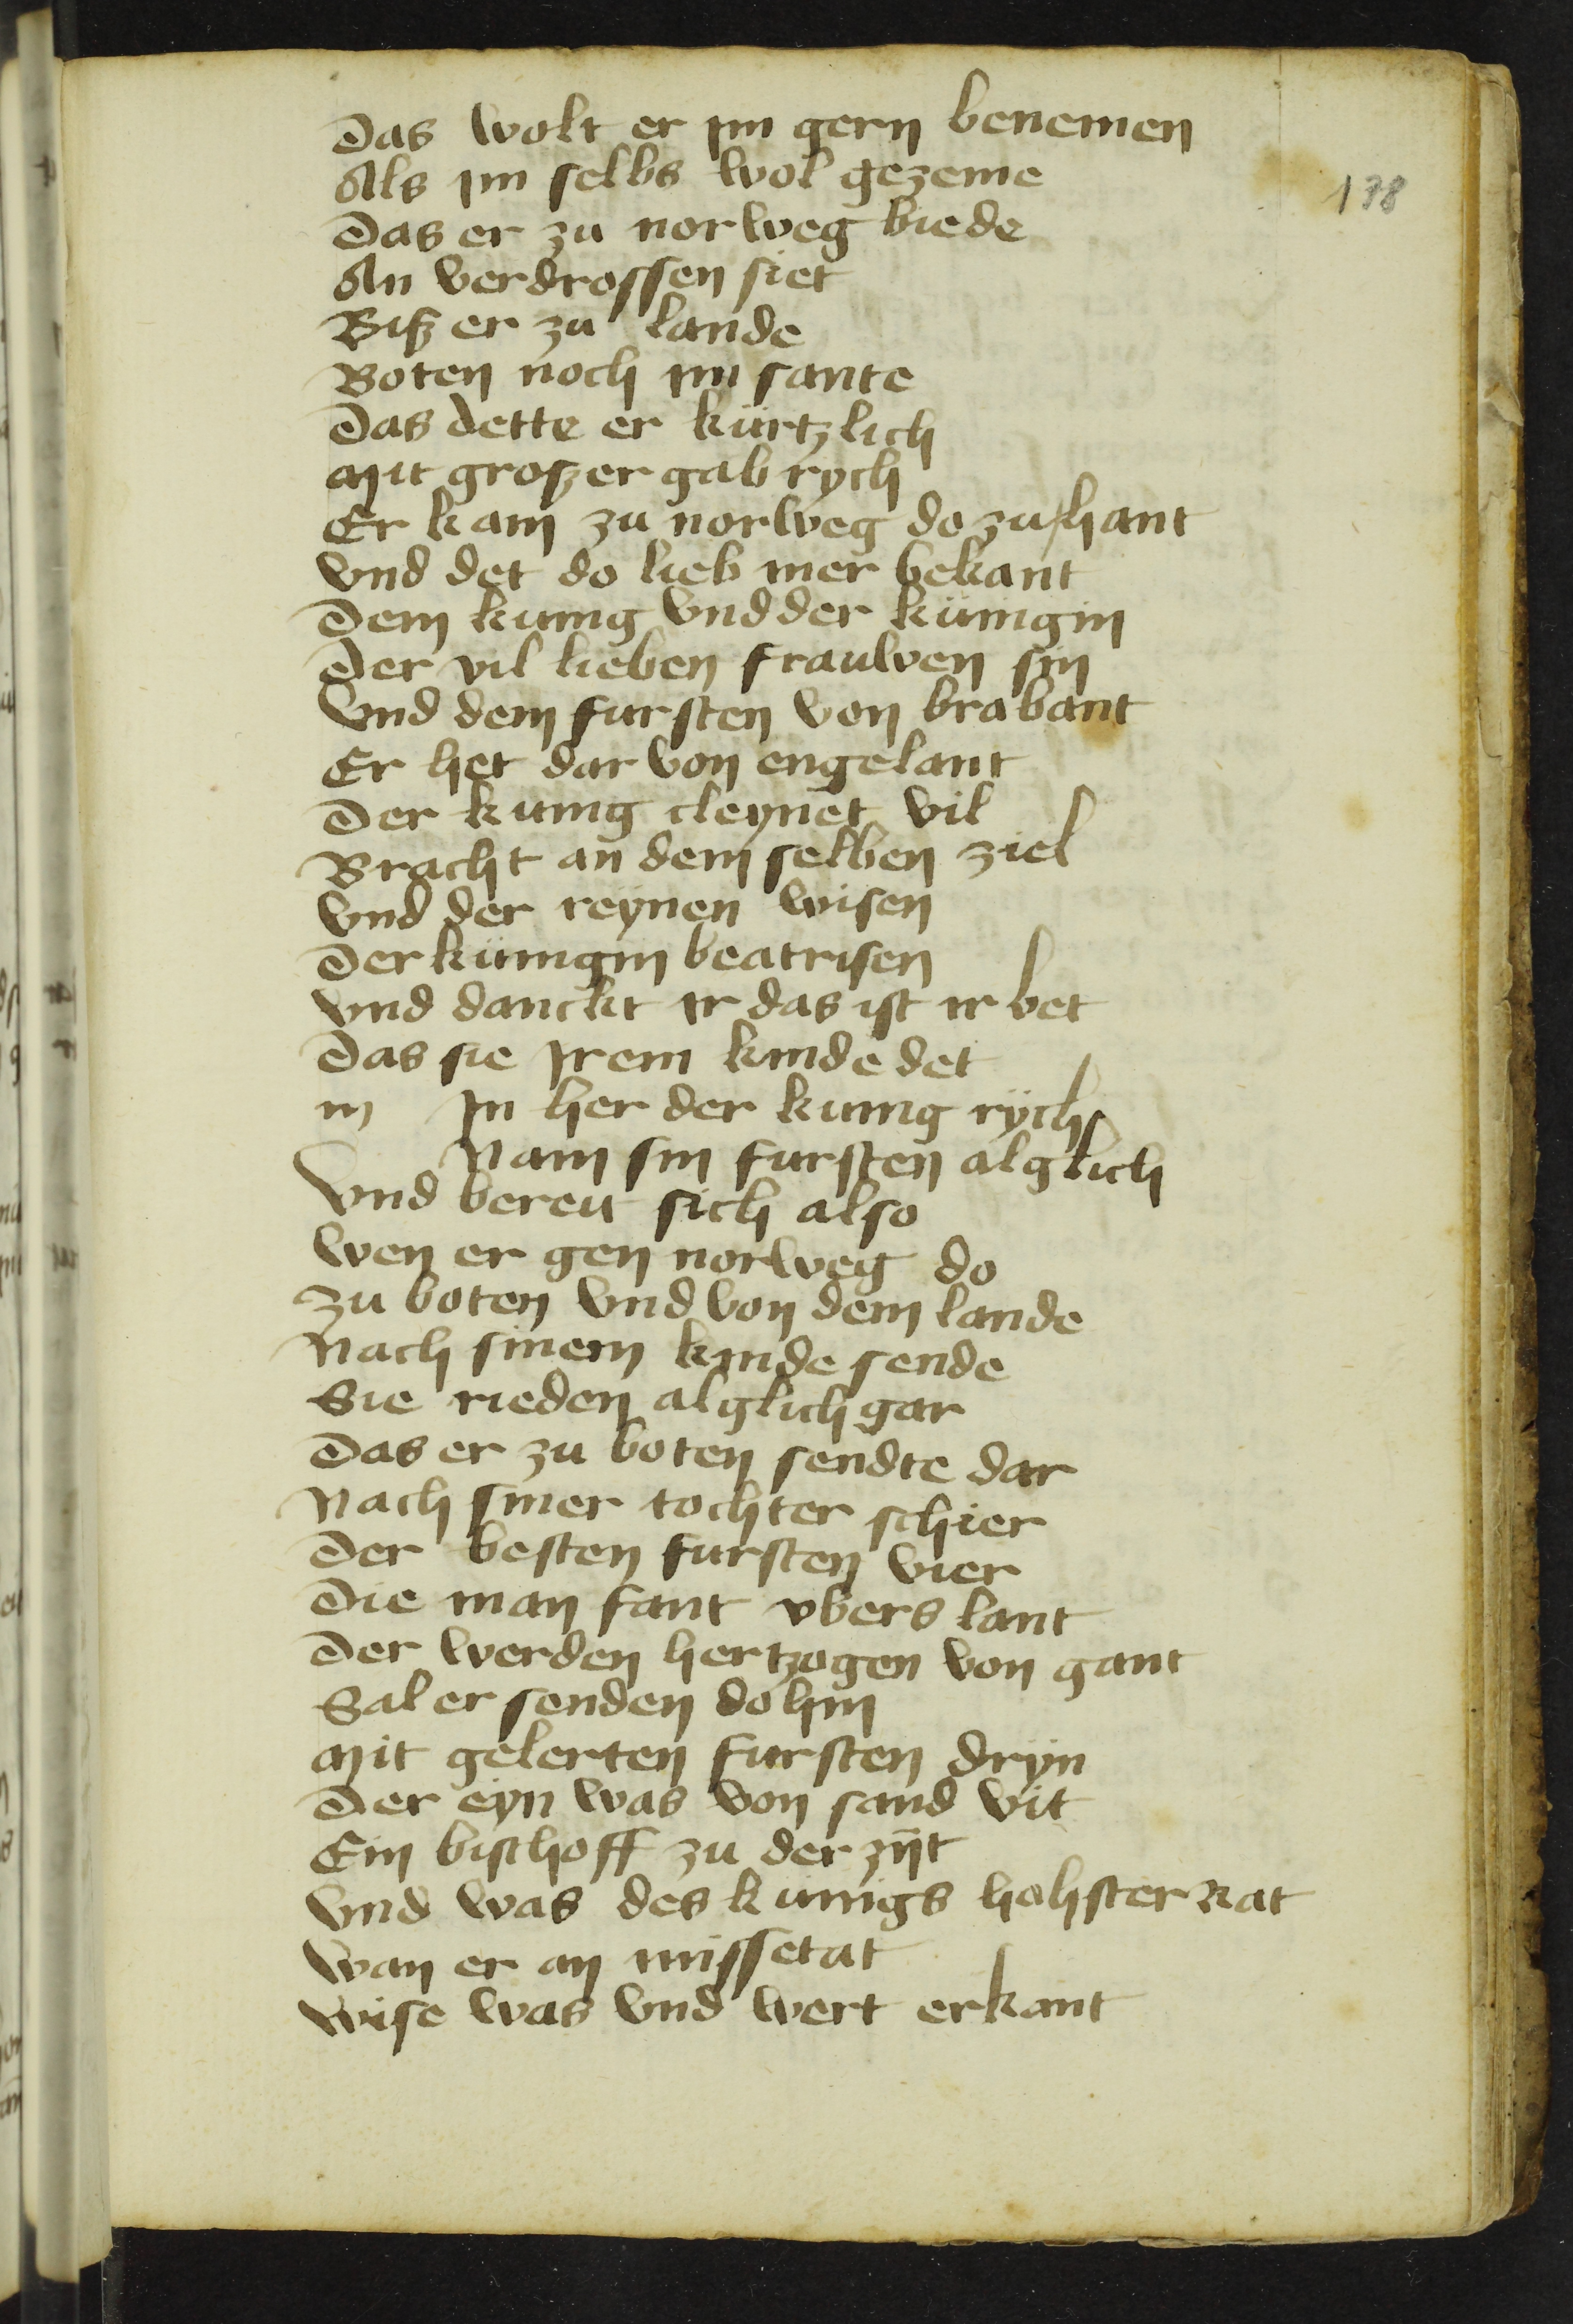 Das wolt er im gern benemen
Als im selbs wol gezeme
Das er zu norweg biede
An verdrossen siet
Biß er zu lande
Boten noch im sante
Das dette er kürtzlich
Mit großer gab rych
Er kam zu norweg do zu hant
Vnd det do lieb mer bekant
Dem kunig vnd der künigin
Der vil lieben frauwen sin
Vnd dem fursten von brabant
Er het dar von engelant
Der kunig cleynet vil
Bracht an dem selben ziel
Vnd der reynen wisen
Der künigin beatrisen
Vnd danckt ir das ist ir bet
Das sie irem kinde det
m In her der kunig rych
Nam sin fursten alglich
Vnd bereit sich also
Wen er gen norweg do
Zu boten vnd von dem lande
Nach sinem kinde sende
Sie rieden alglich gar
Das er zu boten sendte dar
Nach siner tochter schier
Der besten fursten vier
Die man fant vbers lant
Der werden hertzogen von gant
Sal er senden do hin
Mit gelerten fursten dryn
Der eyn was von sand vit
Ein bischoff zu der zyt
Vnd was des kunigs hohster Rat
Wan er an missetat
Wise was vnd wert erkant
138